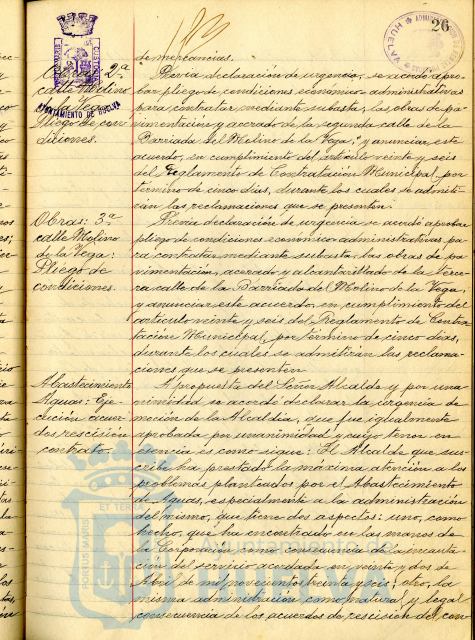 26
AYUNTAMIENTO DE HUELVA
HUELVA
de mercancías.
2ª
calle Molino
de la Vega:
Pliego de con-
diciones.
Previa declaración de urgencia, se acordó apro-
bar pliego de condiciones económico-administrativas
para contratar mediante subasta, las obras de pa-
vimentación y acerado de la segunda calle de la
Barriada del Molino de la Vega, y anunciar este
acuerdo, en cumplimiento del artículo veinte y seis
del Reglamento de Contratación Municipal, por
término de cinco días, durante los cuales se admiti-
rán las reclamaciones que se presenten.
Obras: 3ª
calle Molino
de la Vega:
Pliego de
condiciones.
Previa declaración de urgencia se acordó aprobar
pliego de condiciones económico-administrativas, pa-
ra contratar mediante subasta, las obras de pa-
vimentación, acerado y alcantarillado de la terce-
ra calle de la Barriada del Molino de la Vega,
y anunciar este acuerdo, en cumplimiento del
artículo veinte y seis del Reglamento de Contra-
tación Municipal, por término de cinco días,
durante los cuales se admitirán las reclama-
ciones que se presenten.
Abastecimiento
Aguas: Eje-
cución acuer-
dos rescisión
contrato.
A propuesta del Señor Alcalde y por una-
nimidad se acordó declarar la urgencia de
moción de la Alcaldía, que fue igualmente
aprobada por unanimidad y cuyo tenor en
esencia es como sigue: El Alcalde que sus-
cribe ha prestado la máxima atención a los
problemas planteados por el Abastecimiento
de Aguas, especialmente a la administración
del mismo, que tiene dos aspectos: uno, como
hecho, que ha encontrado en las manos de
la Corporación como consecuencia de la incauta-
ción del servicio acordada en veinte y dos de
Abril de mil novecientos treinta y seis; otro, la
misma administración como natural y legal
consecuencia de los acuerdos de rescisión del con-
PORTUS MARIS
ET TERRAE